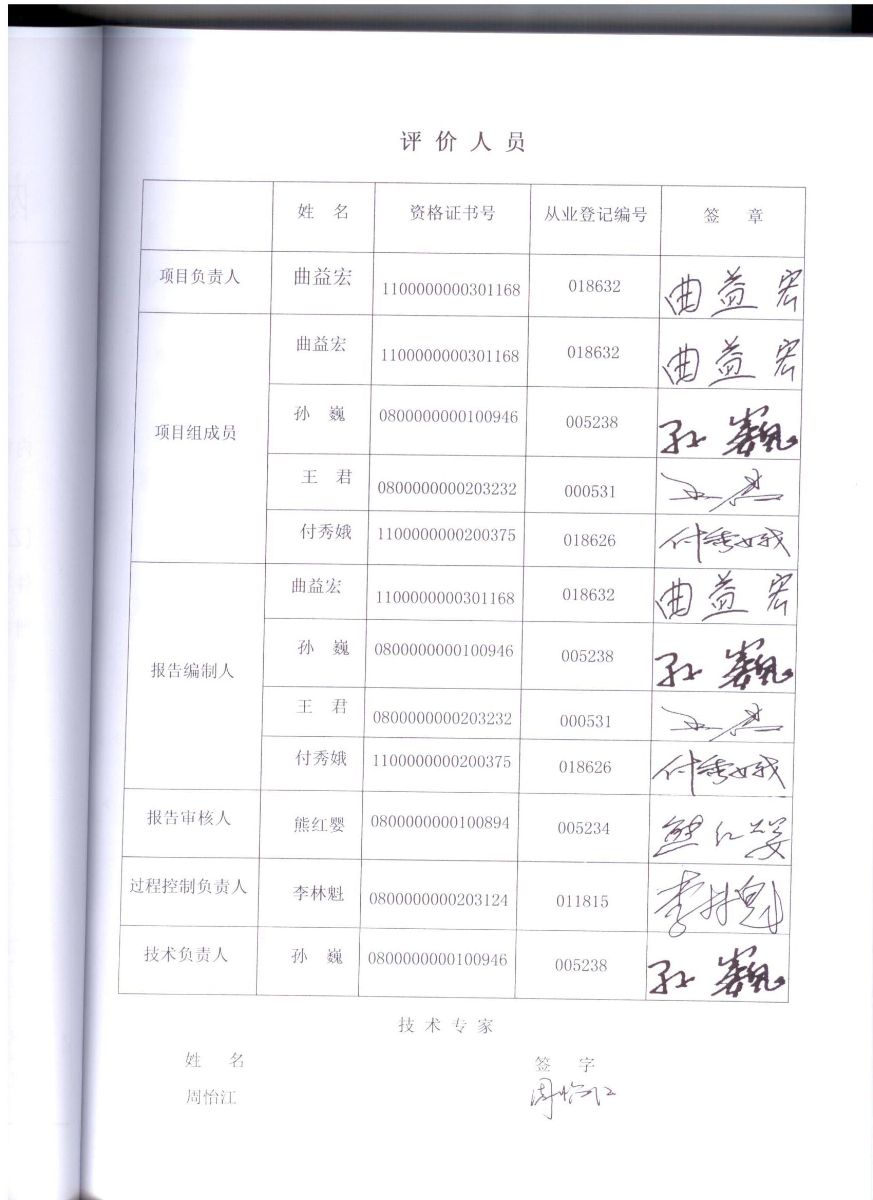 评 价 人 员
姓 名 资格证书号 从业登记编号 签 章
项目负责人 曲益宏 1100000000301168 018632 曲益宏
项目组成员 曲益宏 1100000000301168 018632 曲益宏
孙 巍 0800000000100946 005238 孙巍
王 君 0800000000203232 000531
付秀娥 1100000000200375 018626 付秀娥
报告编制人 曲益宏 1100000000301168 018632 曲益宏
孙 巍 0800000000100946 005238 孙巍
王 君 0800000000203232 000531
付秀娥 1100000000200375 018626 付秀娥
报告审核人 熊红婴 0800000000100894 005234 熊红婴
过程控制负责人 李林魁 0800000000203124 011815 李林魁
技术负责人 孙 巍 0800000000100946 005238 孙巍
技 术 专 家
姓 名 签 字
周怡江 周怡江